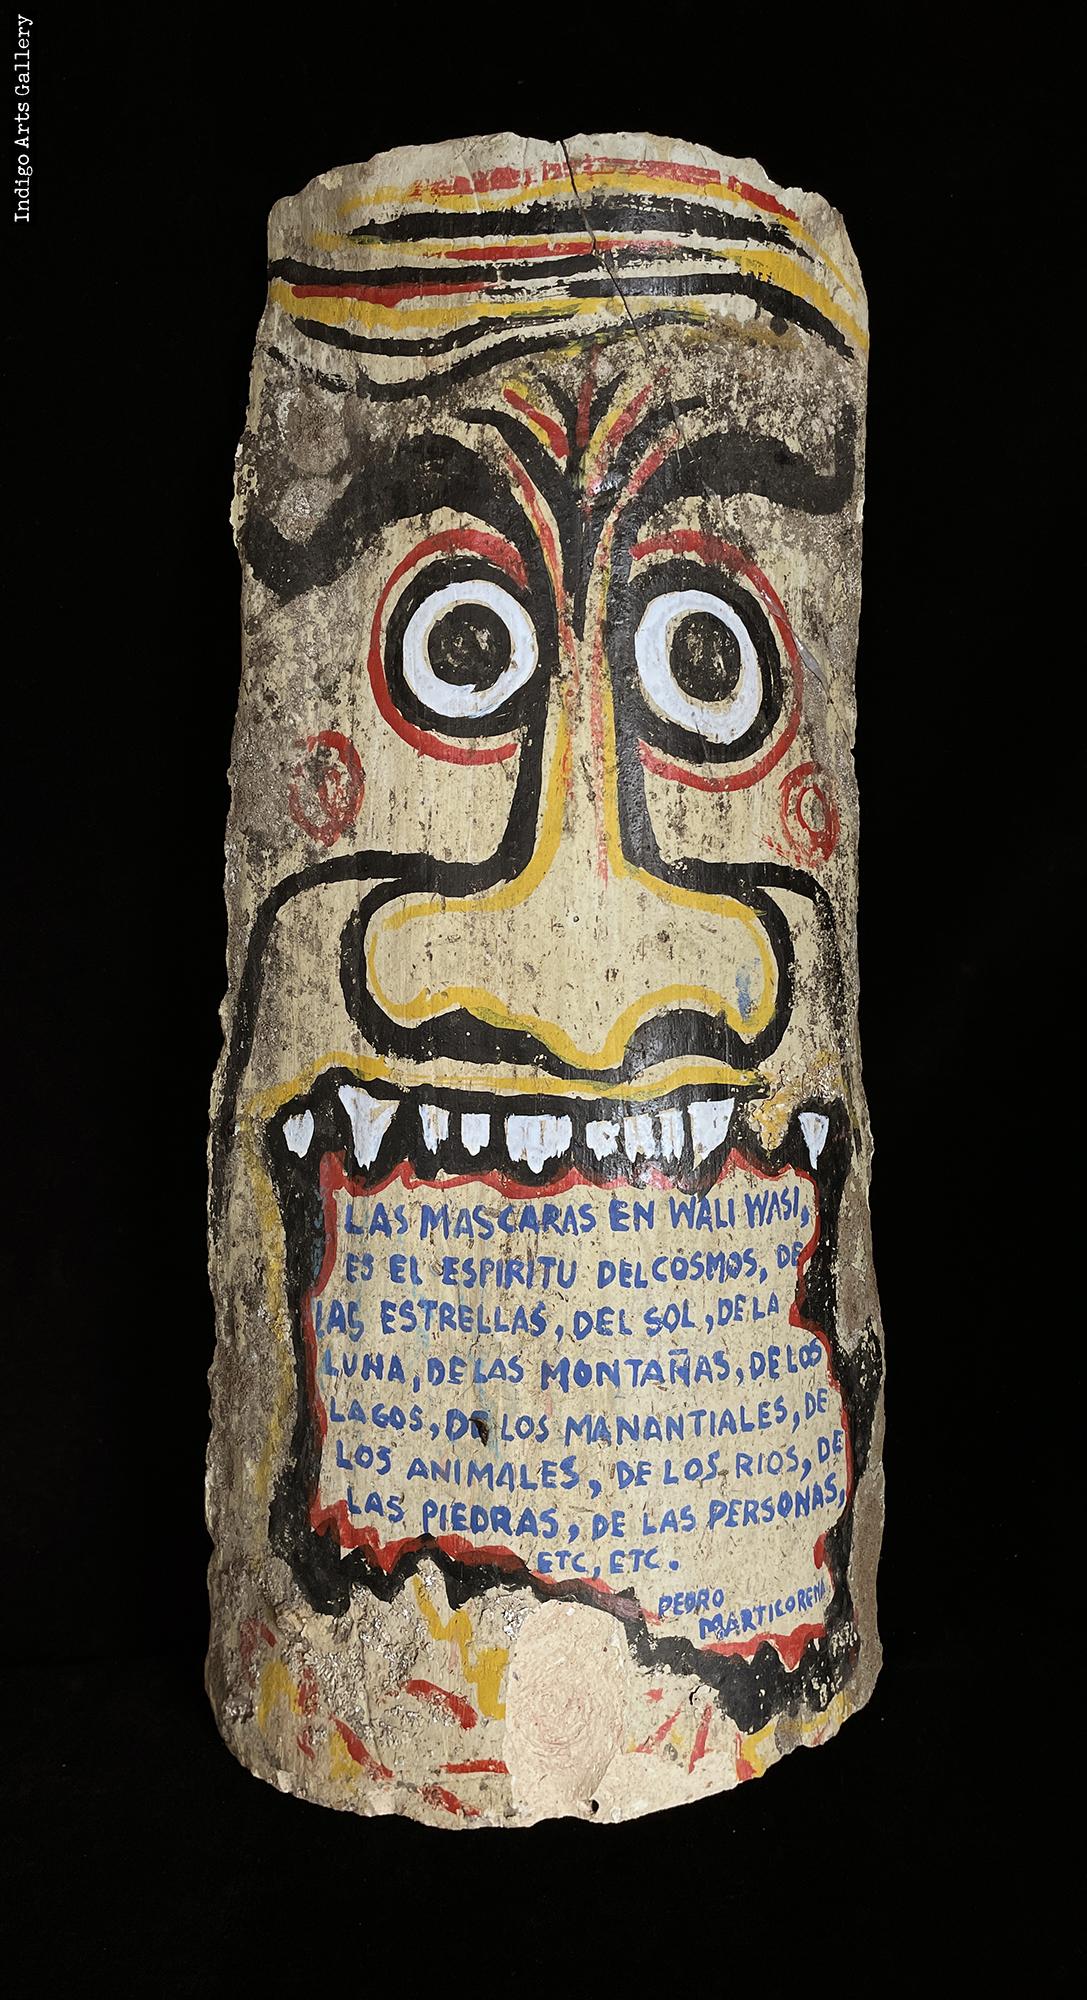 Indigo Arts Gallery
LAS MASCARAS EN WALI WASI,
ES EL ESPIRITU DEL COSMOS, DE
LAS ESTRELLAS, DEL SOL, DE LA
LUNA, DE LAS MONTAÑAS, DE LOS
LAGOS, DE LOS MANANTIALES, DE
LOS ANIMALES, DE LOS RIOS, DE
LAS PIEDRAS, DE LAS PERSONAS,
ETC, ETC.
PEDRO
MARTICORENA